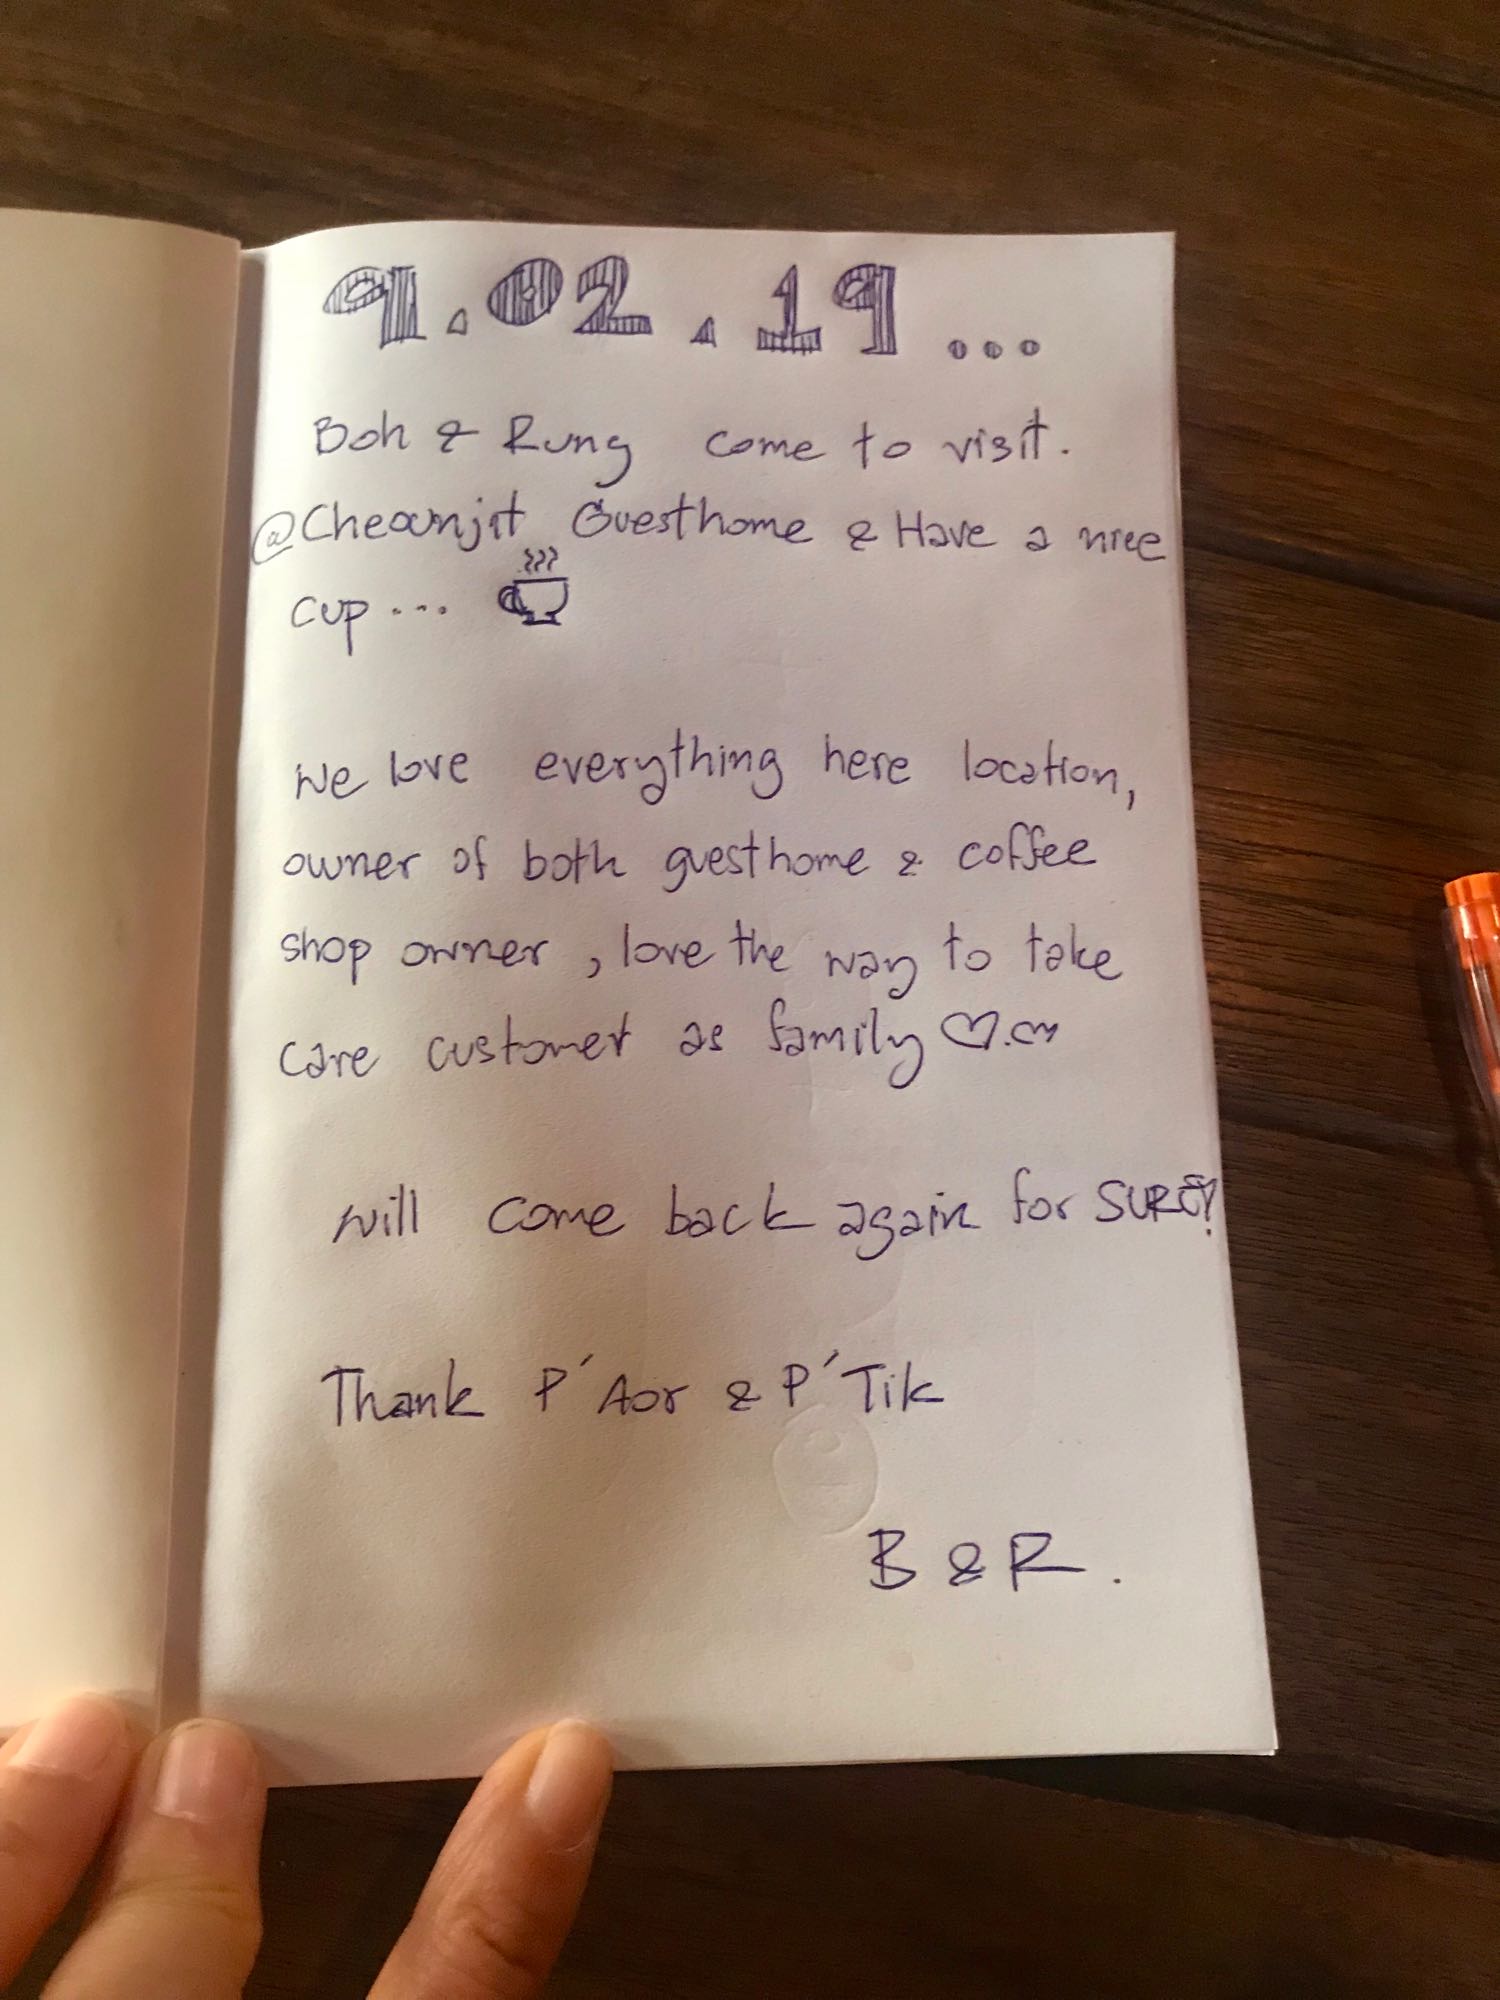 9.02.19...
Boh & Rung come to visit.
@Cheownjit Guesthome & Have a nice
cup...
We love everything here location,
owner of both guesthome & coffee
shop owner, love the way to take
care customer as family
will come back again for SURE!
Thank P'Aor & P'Tik
B & R.